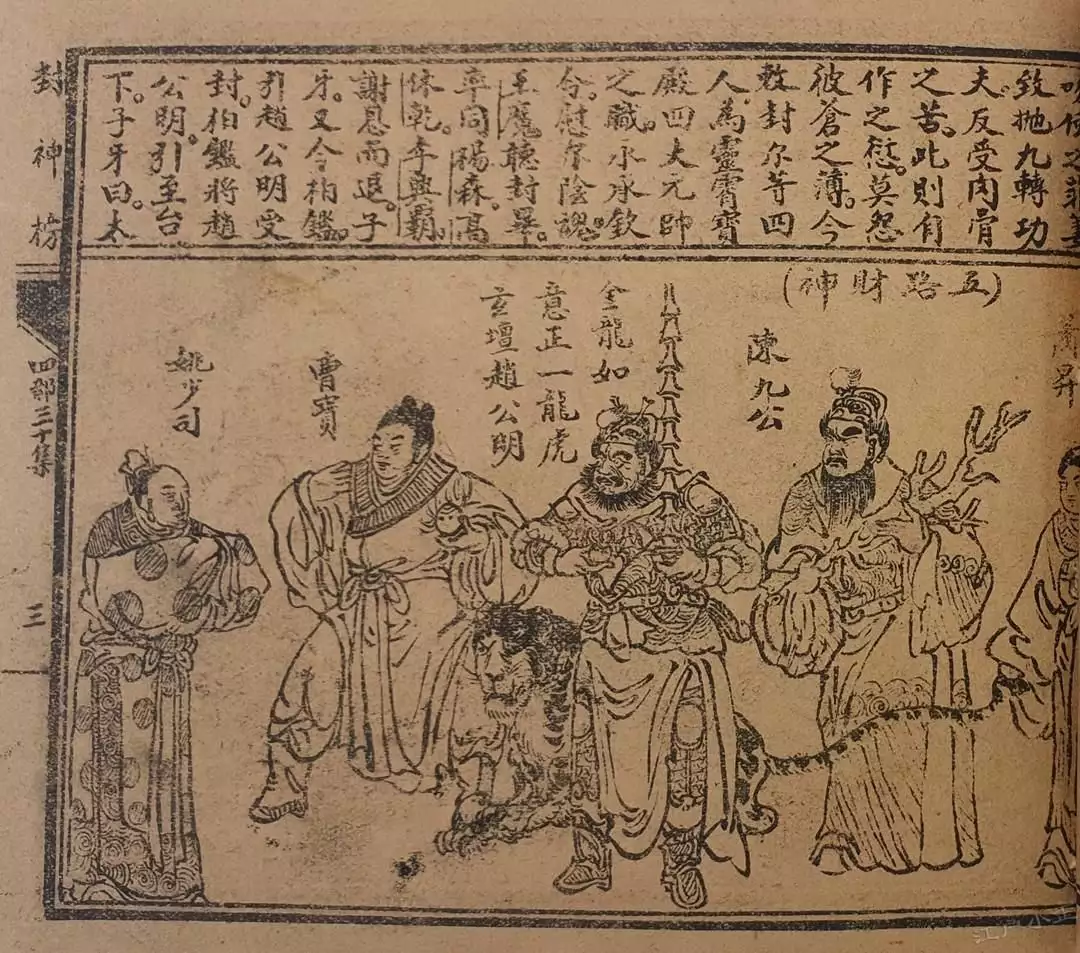 致抛九轉功
夫。反受肉骨
之苦。此則自
作之愆。莫怨
彼蒼之薄。今
敕封尔等四
人。為靈霄寶
殿四大元帥
之職。永承欽
令。慰尔陰魂。
王魔聽封畢。
率同楊森。高
休乾。李興霸。
謝恩而退。子
牙。又令柏鑑。
引趙公明受
封。柏鑑將趙
公明。引至台
下。子牙曰。太
(五路財神)
昇
陳九公
金龍如
意正一龍虎
玄壇趙公明
曹寶
姚少司
封神榜
四部三十集
三